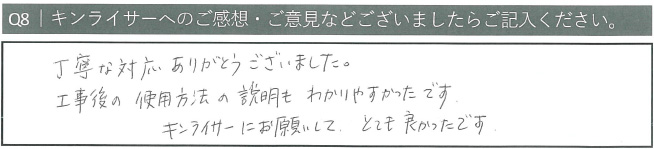 Q8｜キンライサーへのご感想・ご意見などございましたらご記入ください。
丁寧な対応ありがとうございました。
工事後の使用方法の説明もわかりやすかったです.
キンライサーにお願いして、とても良かったです.